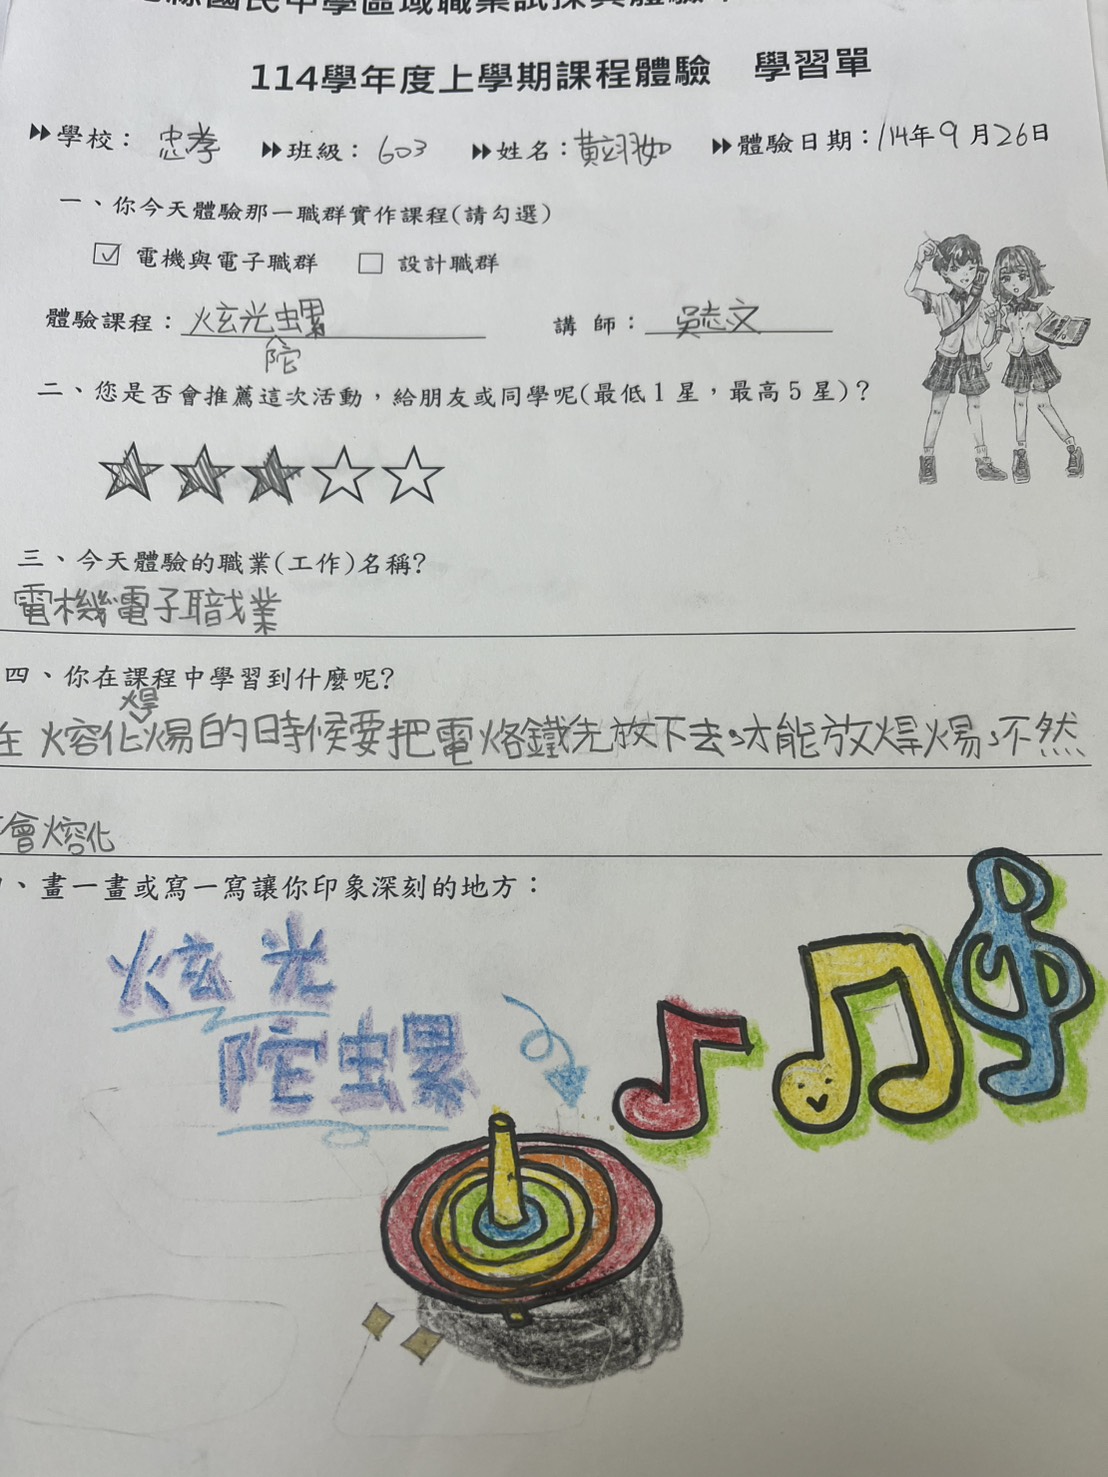 國民中學區域職業試探與體驗
114學年度上學期課程體驗 學習單
學校：忠孝 班級：603 姓名：黃翊如 體驗日期：114年9月26日
一、你今天體驗那一職群實作課程(請勾選)
☑ 電機與電子職群 □ 設計職群
體驗課程：炫光陀螺 講師：吳志文
二、您是否會推薦這次活動，給朋友或同學呢(最低1星，最高5星)？
三、今天體驗的職業(工作)名稱?
電機電子職業
四、你在課程中學習到什麼呢?
在熔化焊煬的時候要把電烙鐵先放下去，才能放焊煬，不然
會熔化
、畫一畫或寫一寫讓你印象深刻的地方：
炫光
陀螺